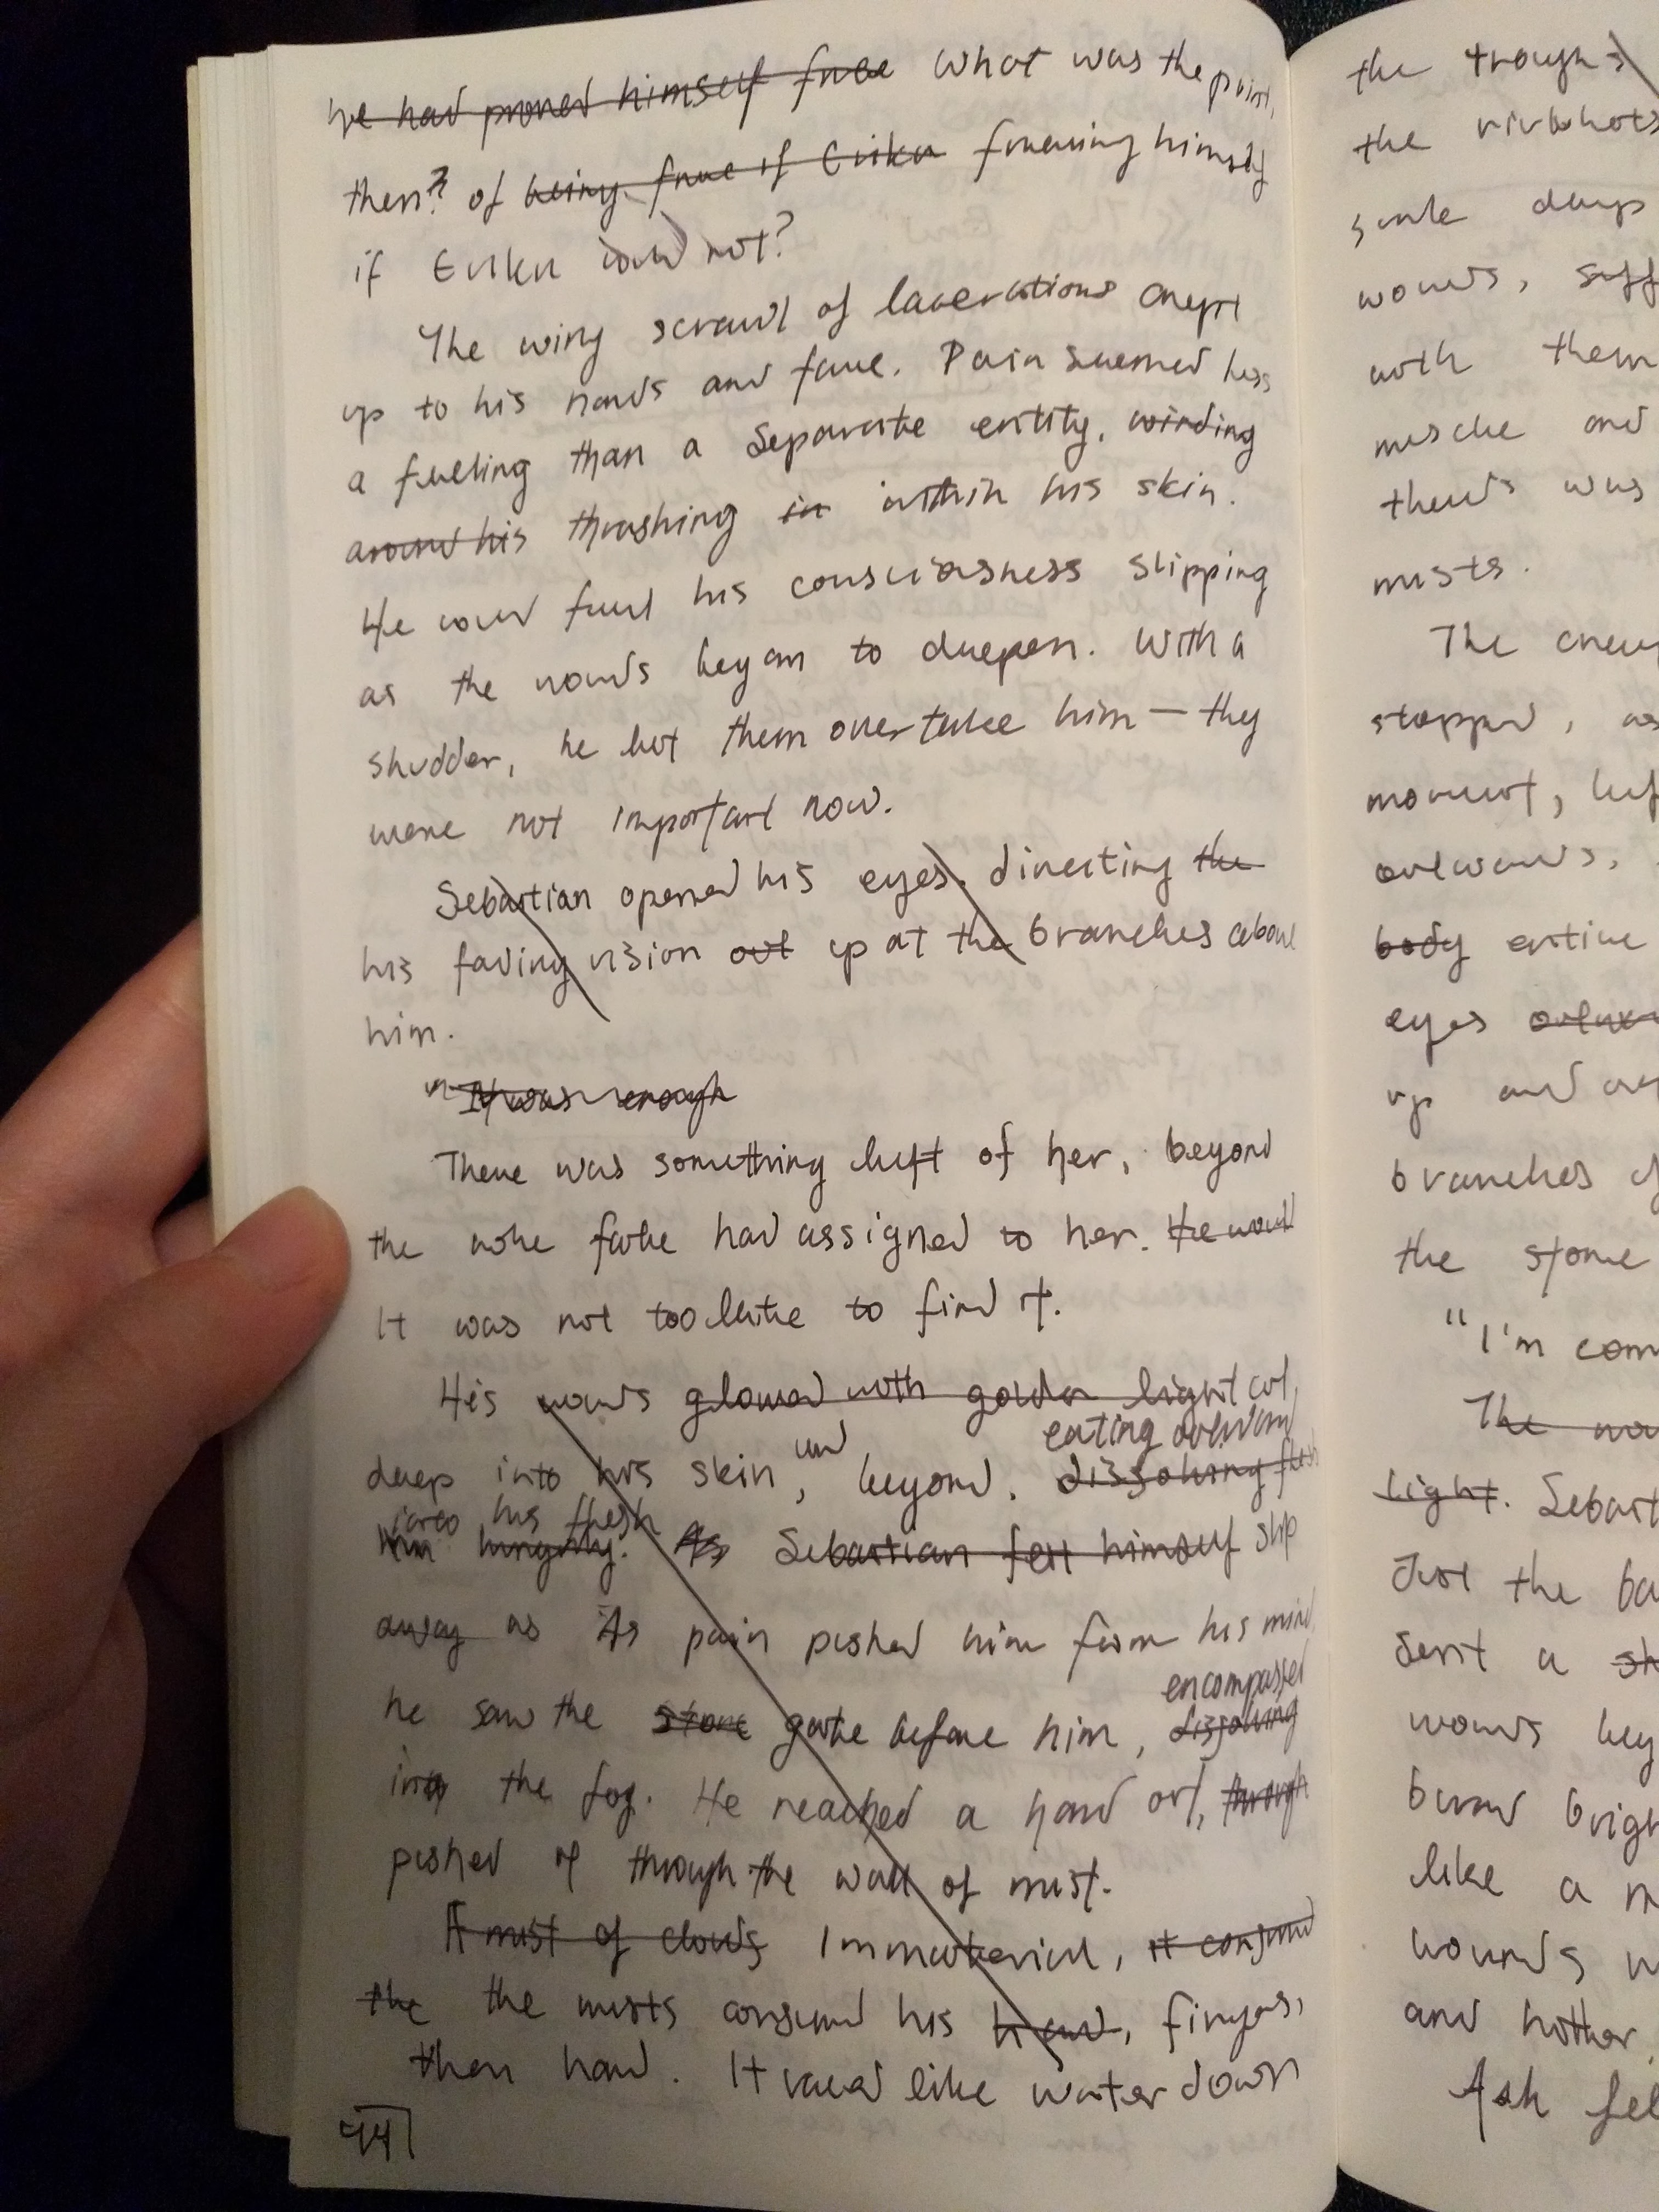 he had proved himself free What was the point,
then? of being free if Erika freeing himself
if Erika could not?
The wiry scrawl of lacerations crept
up to his hands and face. Pain seemed less
a feeling than a separate entity, winding
around his thrashing in within his skin.
He could feel his consciousness slipping
as the wounds began to deepen. With a
shudder, he let them overtake him — they
were not important now.
Sebastian opened his eyes, directing the
his fading vision out up at the branches above
him.
"It was enough
There was something left of her, beyond
the role fate had assigned to her. He would
It was not too late to find it.
His wounds glowed with golden light cut
eating outward
deep into his skin, and beyond. dissolving flesh
into his flesh
him hungrily. As Sebastian felt himself slip
away as As pain pushed him from his mind
encompassed
he saw the stone gate before him, dissolving
into the fog. He reached a hand out, through
pushed it through the wall of mist.
A mist of clouds Immaterial, it consumed
the the mists consumed his hand, fingers,
then hand. It raced like water down
44
the trough
the
sunk deep
wounds, suff
with them
muscle and
there was
mists.
The
stopped, as
moment, bef
outwards,
body entire
eyes
up and
branches of
the stone
"I'm com
The
light. Sebast
Just the ba
sent a sh
wounds beg
burn brigh
like a m
wounds w
and hotter,
Ash fel